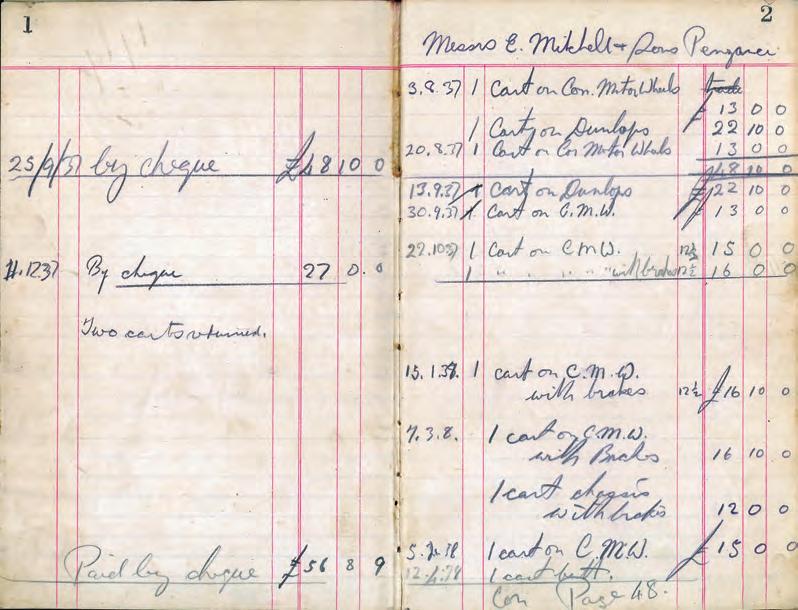 1
25/9/37 by cheque £48 10 0
11.12.37 By cheque 27 0. 0
Two carts returned.
Paid by cheque £56 8 9
2
Messrs E. Mitchell & Sons
3.8.37 1 Cart on Con. Motor Wheels trade
£ 13 0 0
1 Cart on Dunlops 22 10 0
20.8.37 1 Cart on Con Motor Wheels 13 0 0
48 10 0
13.9.37 1 Cart on Dunlops £22 10 0
30.9.37 1 Cart on C.M.W. £ 13 0 0
22.10.37 1 Cart on C.M.W. 12½ 15 0 0
1 " " " " with brakes 12½ 16 0 0
15.1.38. 1 cart on C.M.W.
with brakes 12½ £16 10 0
7.3.8. 1 cart on C.M.W.
with Brakes 16 10 0
1 cart chassis
with brakes 12 0 0
1 cart on C.M.W. £ 15 0 0
1 cart
Con Page 48.